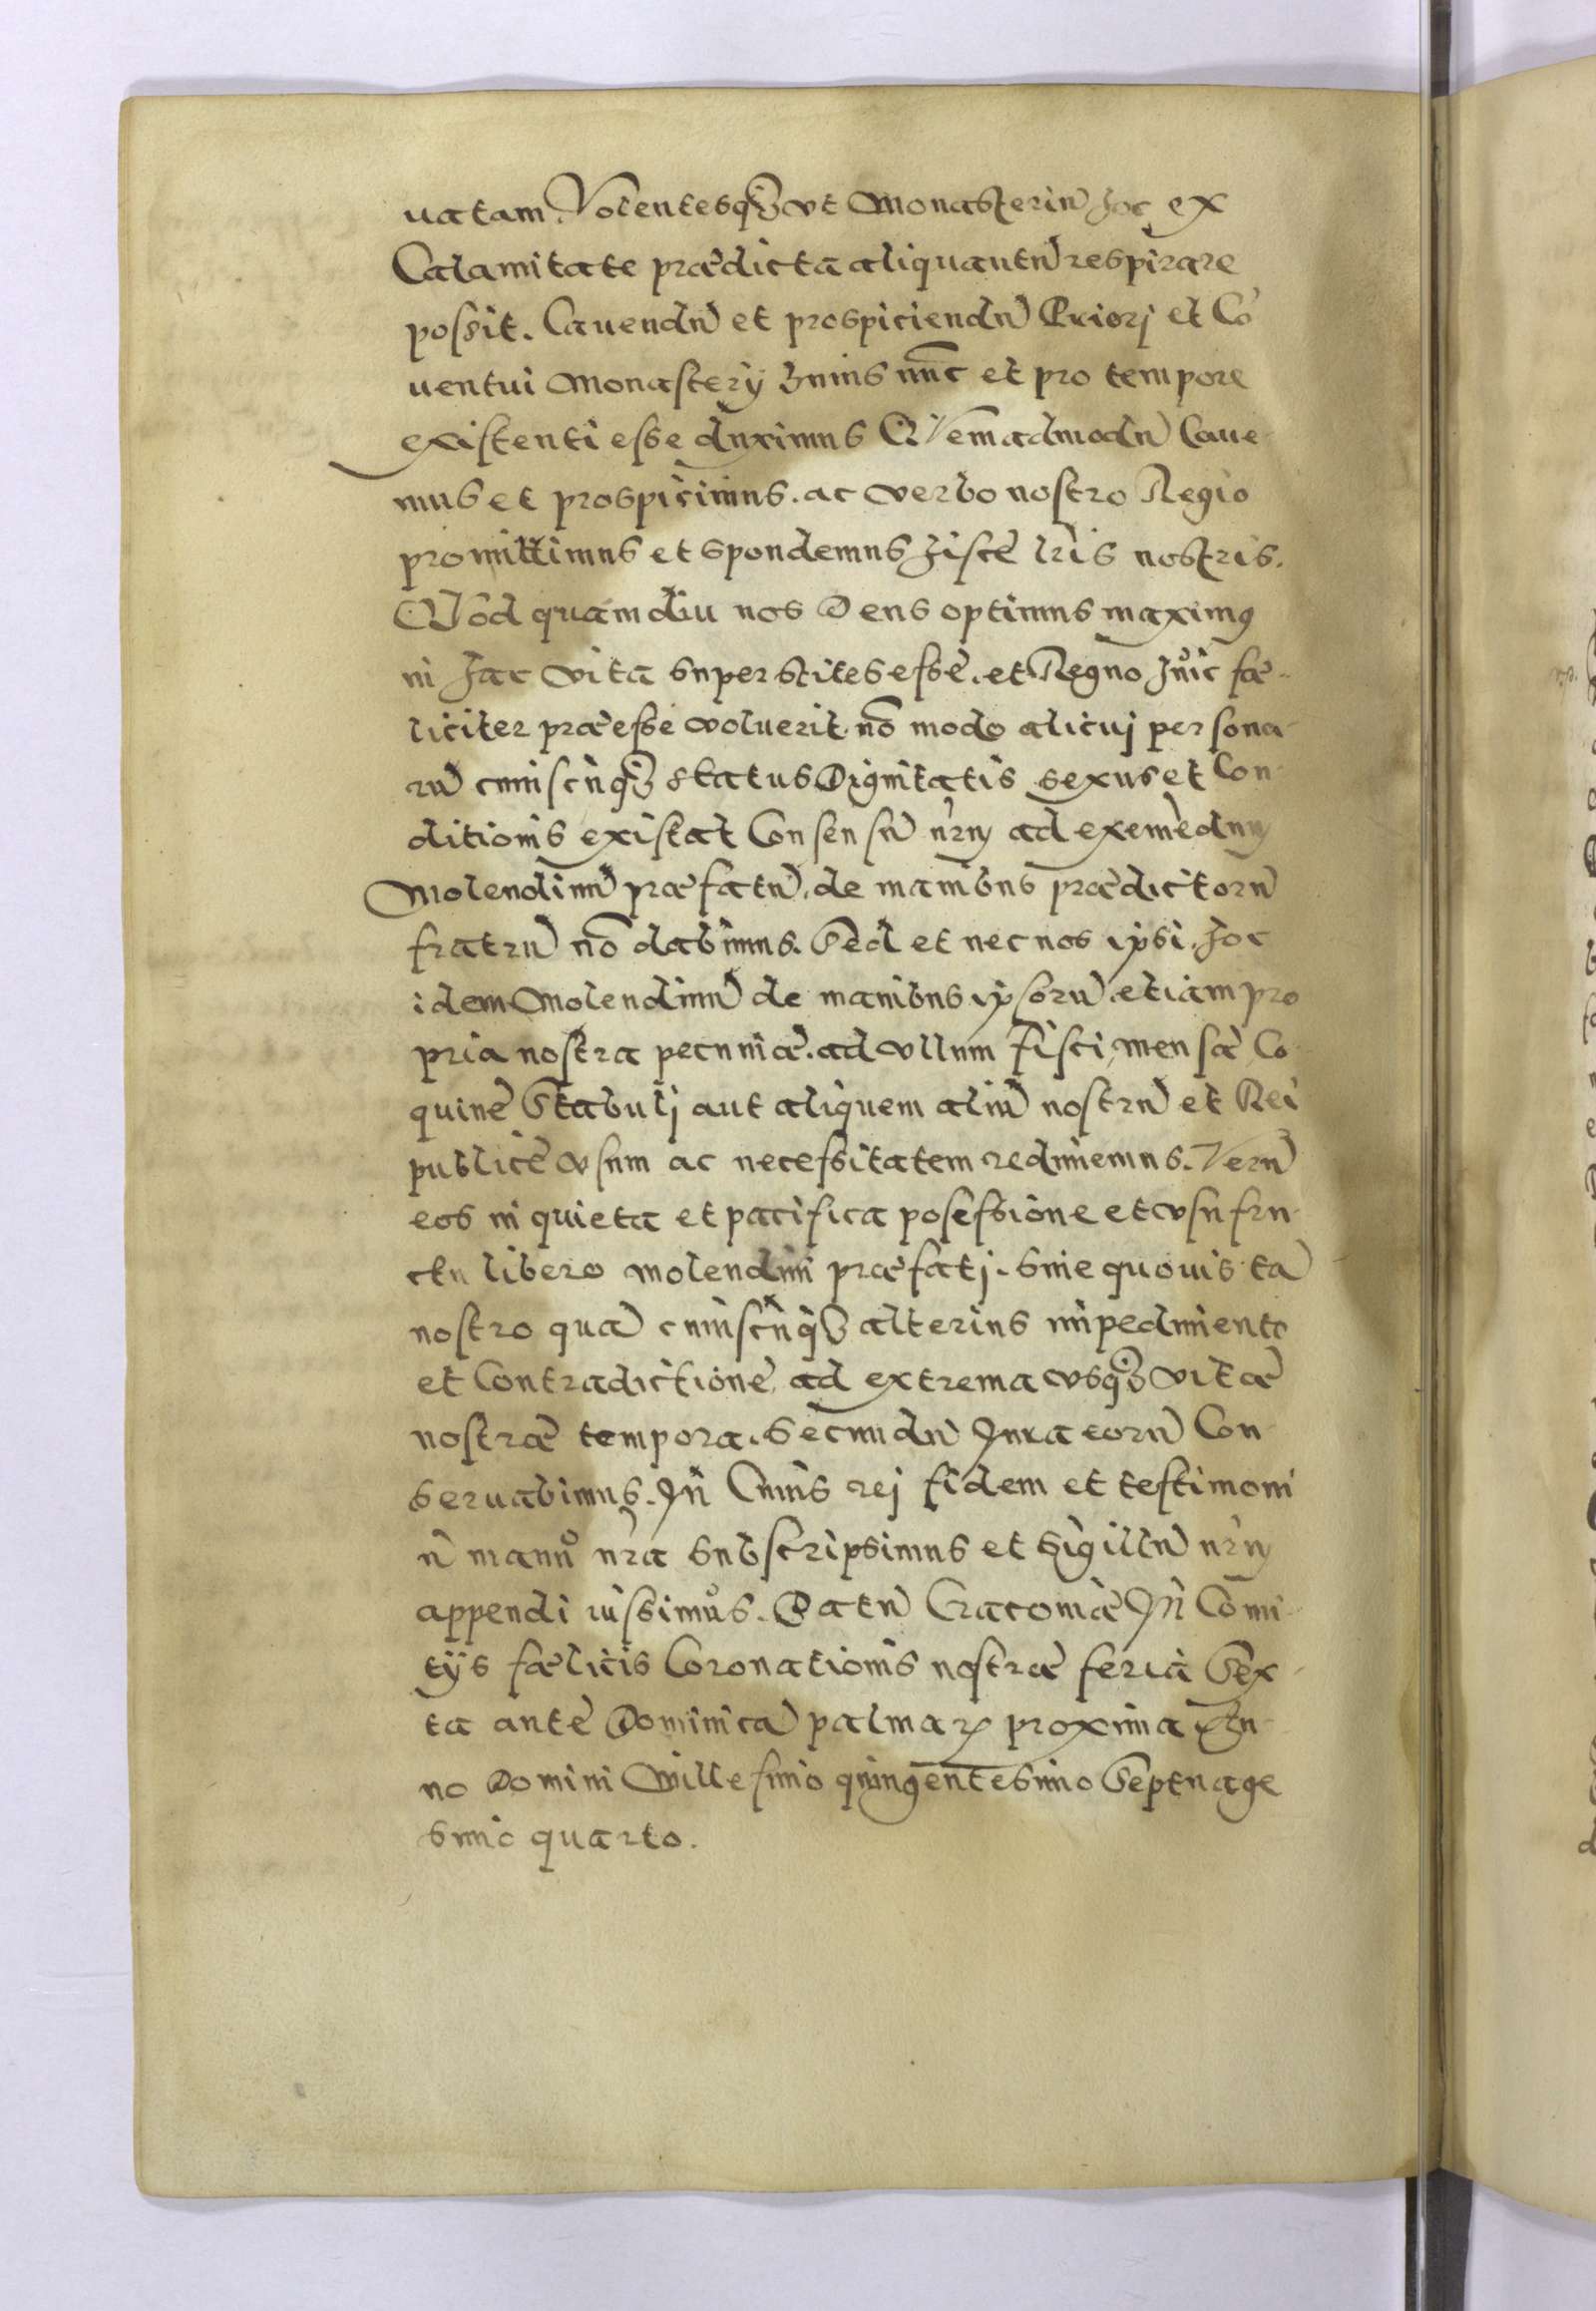 uatam. Volentesq₃ vt Monasteriū hoc ex
Calamitate prædicta aliquantū respirare
possit. Cauendū et prospiciendū Priorj et Cō
uentui Monasterÿ huius nūc et pro tempore
existenti esse duximus QVemadmodū Caue
mus et prospicimus. ac verbo nostro Regio
promittimus et spondemus hisce lr̄is nostris.
QVod quamdiu nos Deus optimus maximꝰ
in hac vita superstites esse. et Regno huic fæ-
liciter præesse voluerit. nō modo alicuj persona-
rū cuiuscūq₃ status Dignitatis sexus et Con-
ditionis existat Consensū nr̄m ad exemēdum
Molendinū præfatū. de manibus prædictorū
fratrū nō dabimus. Sed et nec nos ipsi. hoc
idem Molendinū de manibus ipsorū etiam pro
pria nostra pecunia. ad vllum Fisci, mensæ Co
quinē Stabulj aut aliquem aliū nostrū et Rei
publicē vsum ac necessitatem redimemus. Verū
eos in quieta et pacifica posessione et vsufru-
ctu libero molendini præfatj. sine quouis tā
nostro quā cuiuscūq₃ alterius impedimento
et Contradictione ad extrema vsq₃ vitæ
nostræ tempora. Secundū Jura eorū Con-
seruabimus. In Cuius rej fidem et testimoni
ū manu nr̄a subscripsimus et Sigillū nr̄m
appendi iussimus. Datū Cracouiæ In Comi-
tÿs fælicis Coronationis nostræ feria Sex-
ta ante Dominicā palmaꝝ proxima An-
no Domini Millesimo quingentesimo Septuage
simo quarto.